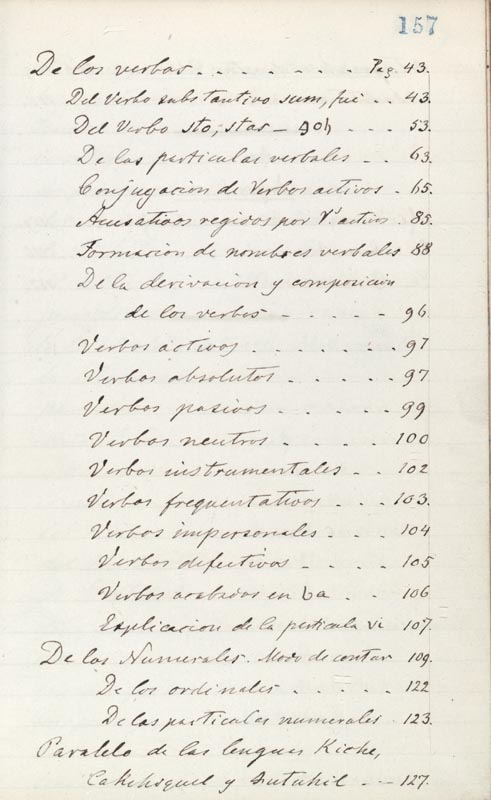 157
De los verbos . . . . . . . Pag 43.
Del Verbo substantivo sum, fui . . 43.
Del Verbo sto, stas – goh . . . 53.
De las particulas verbales . . 63.
Conjugacion de Verbos activos . 65.
Acusativos regidos por Vs. activos . 85.
Formacion de nombres verbales 88
De la derivacion y composicion
de los verbos - - - - - 96
Verbos activos . . . . . . . 97
Verbos absolutos . . . . . 97
Verbos pasivos . . . . . 99
Verbos neutros . . . . . 100
Verbos instrumentales . . . 102
Verbos frequentativos . . . 103.
Verbos impersonales . . . 104
Verbos defectivos - . . . 105
Verbos acabados en ba . . 106
Explicacion de la particula vi 107.
De los Numerales. Modo de contar 109.
De los ordinales . . . . . 122
De las particulas numerales . 123.
Paralelo de las lenguas Kiche,
Cakchiquel y Sutuhil . -- 127.